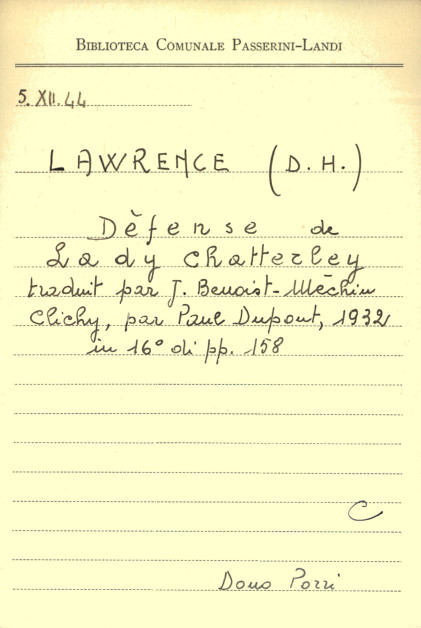 BIBLIOTECA COMUNALE PASSERINI-LANDI
5. XII. 44
LAWRENCE (D. H.)
Dèfense de
Lady Chatterley
traduit par J. Benoist-Mèchin
Clichy, par Paul Dupont, 1932
in 16° di pp. 158
C
Dono Porri